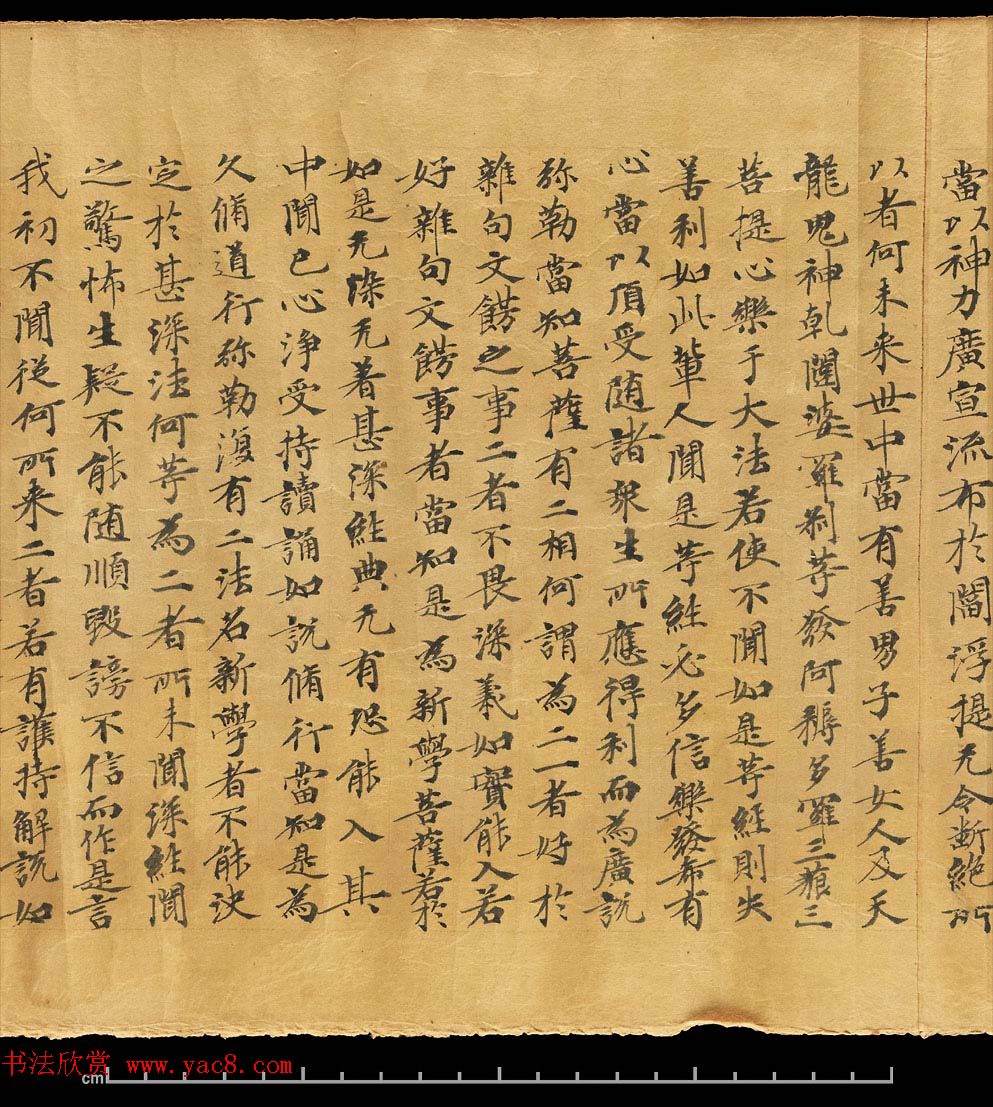 當以神力廣宣流布於閻浮提无令斷絕所
以者何未来世中當有善男子善女人及天
龍鬼神乹闥婆羅刹等發阿耨多羅三藐三
菩提心樂于大法若使不聞如是等經則失
善利如此輩人聞是等経必多信樂發希有
心當以頂受随諸衆生所應得利而為廣說
弥勒當知菩薩有二相何謂為二一者好於
雜句文餝之事二者不畏深義如實能入若
好雜句文餝事者當知是為新學菩薩若於
如是无染无著甚深経典无有恐能入其
中聞已心淨受持讀誦如説脩行當知是為
久脩道行弥勒復有二法名新學者不能決
定於甚深法何等為二者所未聞深経聞
之驚怖生疑不能随順毀謗不信而作是言
我初不聞従何所来二者若有護持解說如
书法欣赏 www.yac8.com
cm